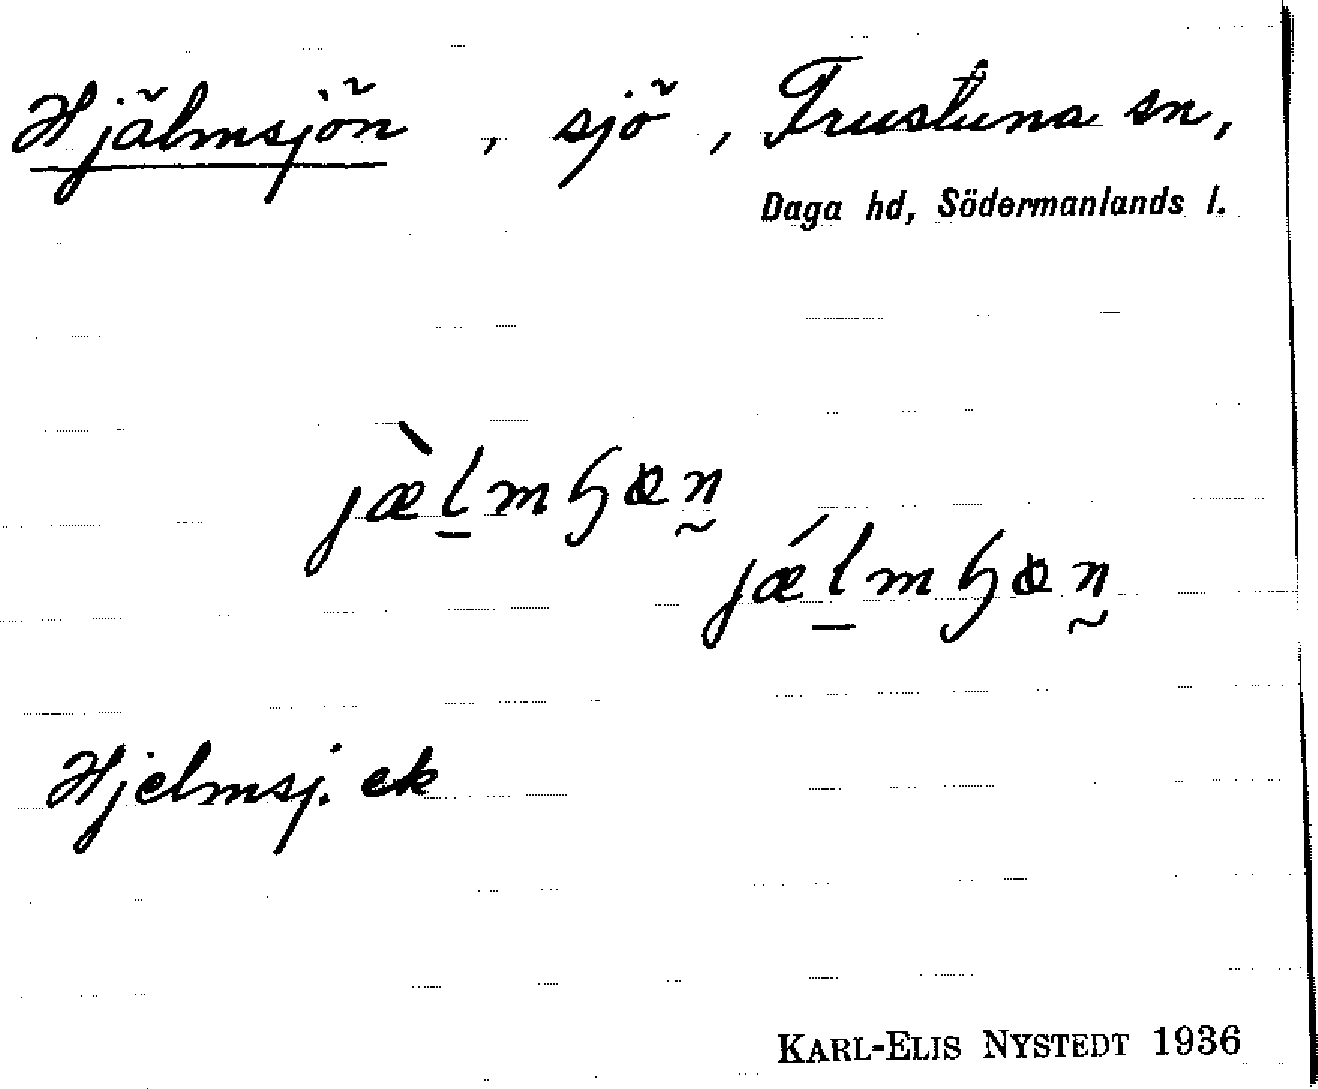 Hjälmsjön, sjö, Frustuna sn,
Daga hd, Södermanlands l.
jæ̀l̠mɧœn̰
jǽl̠mɧœn̰
Hjelmsj. ek
KARL-ELIS NYSTEDT 1936